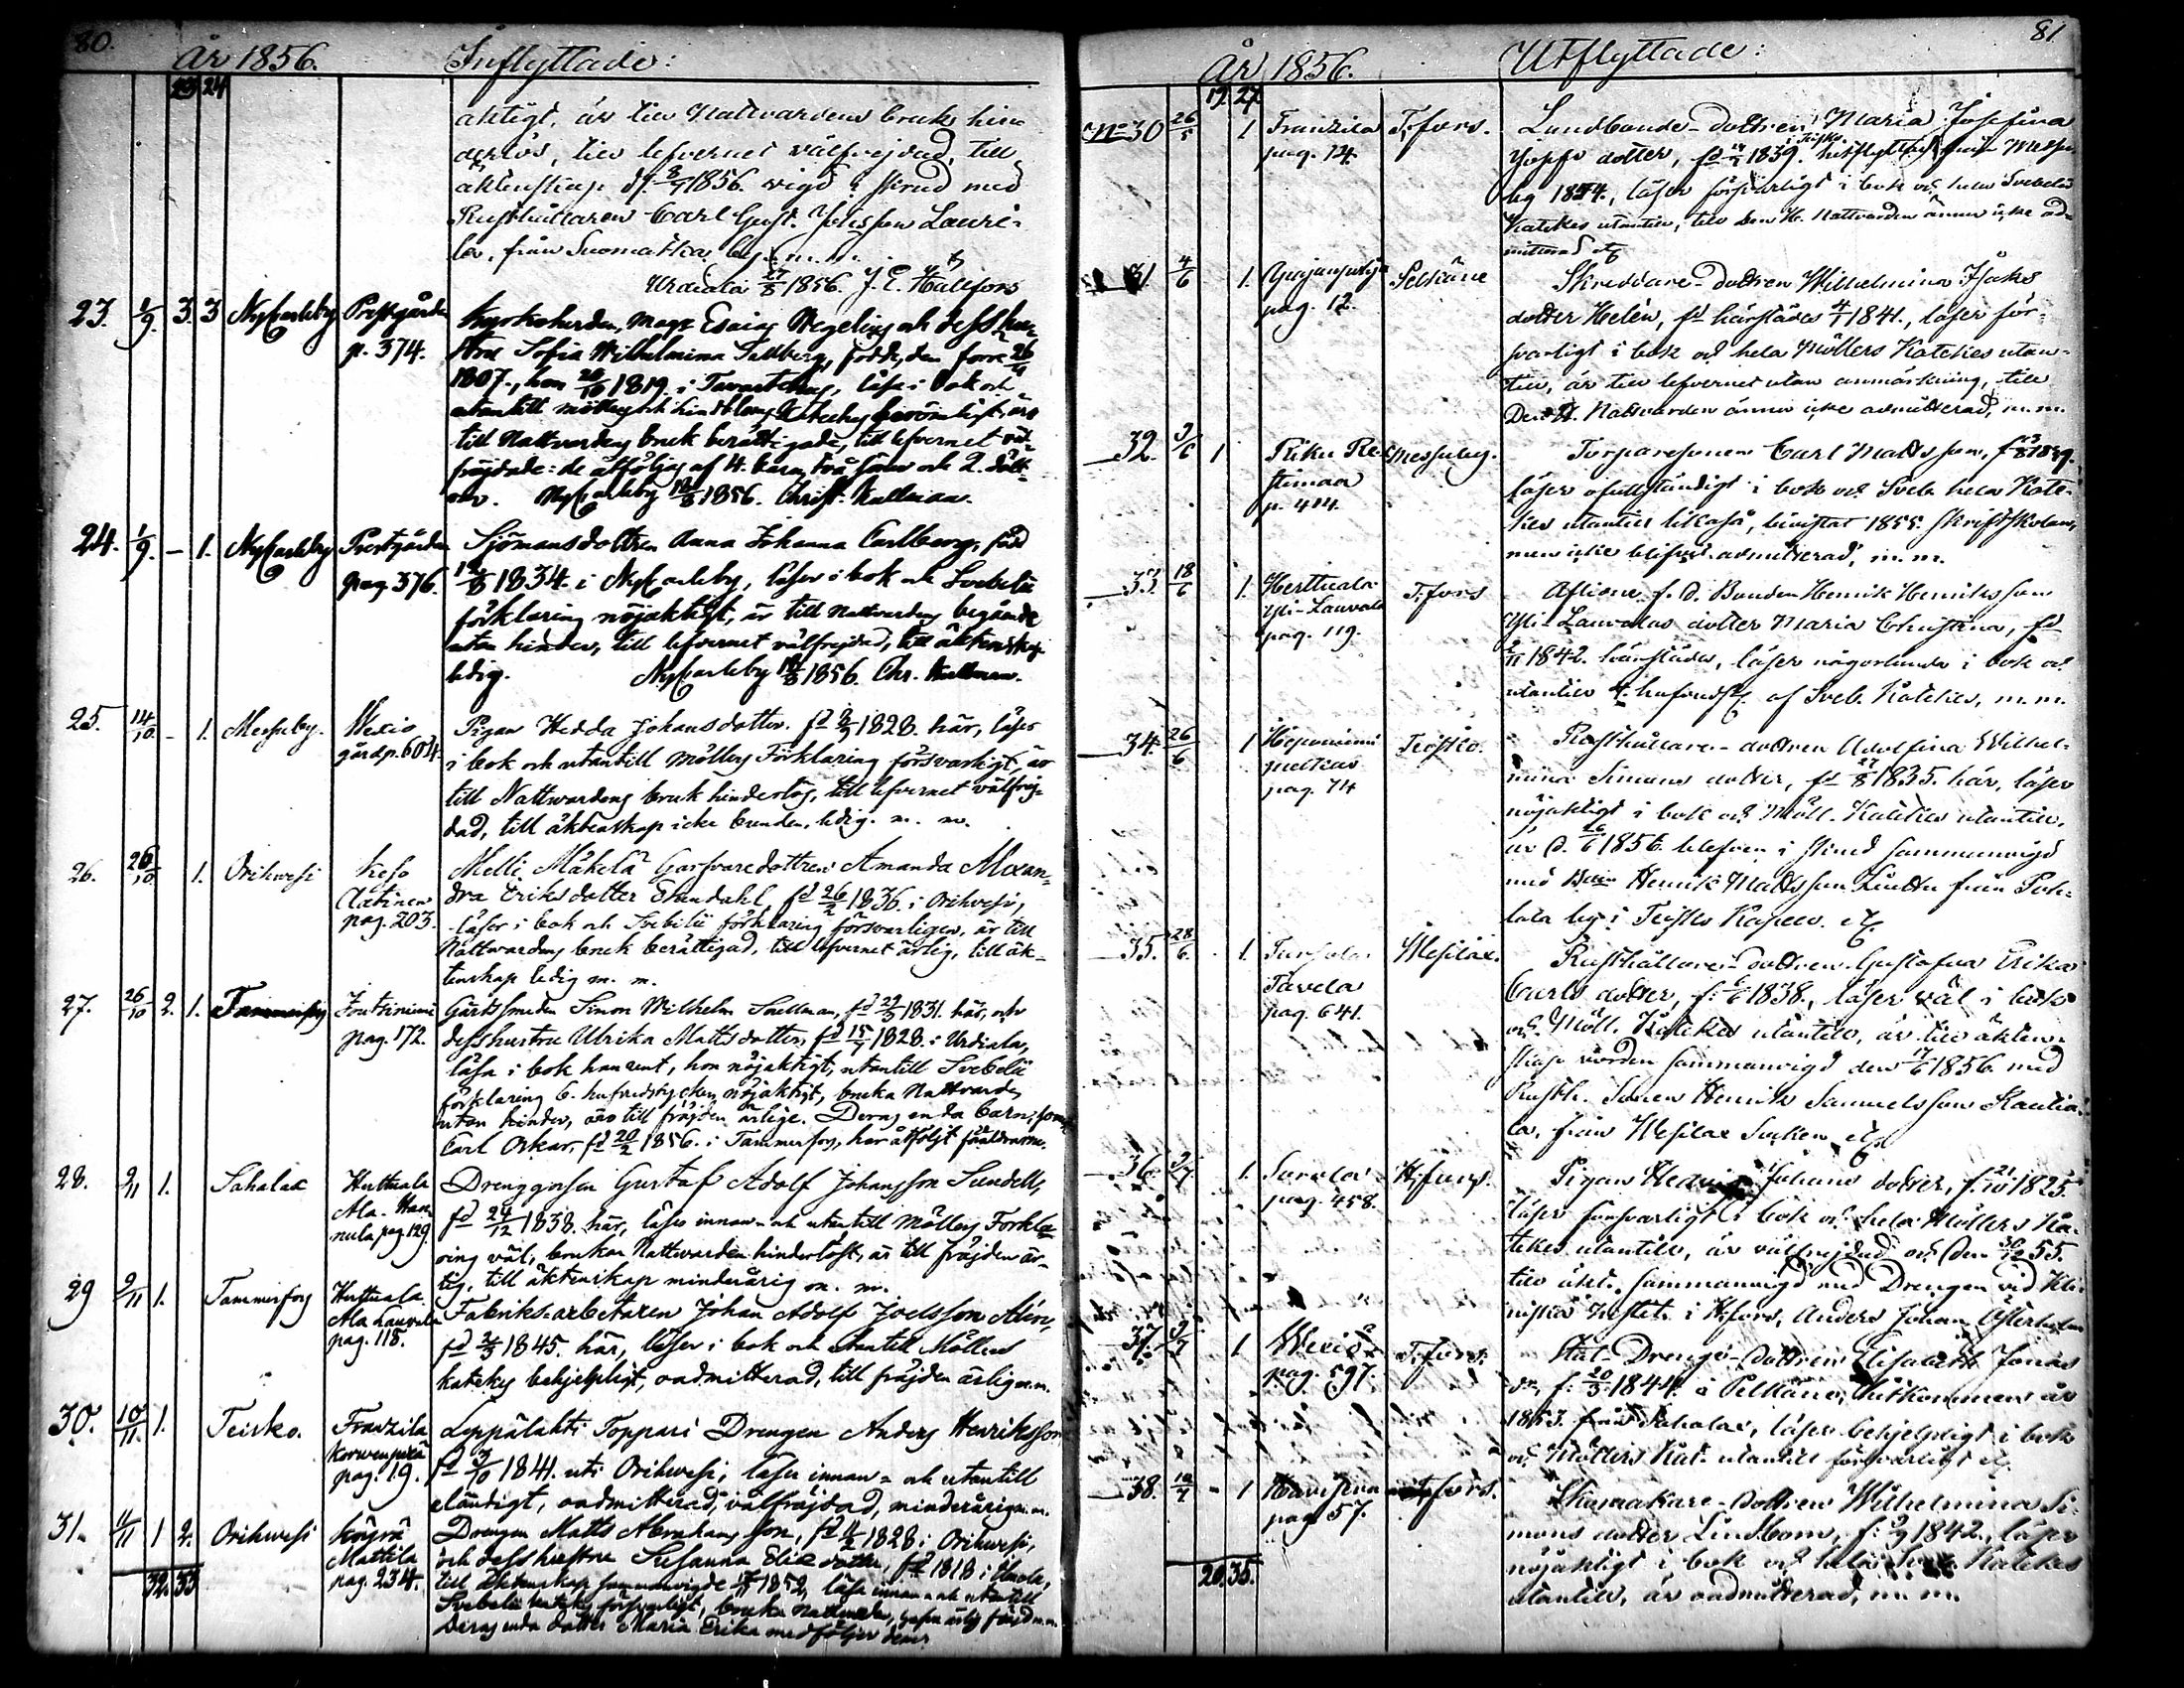 80.
År 1856. Inflyttade:
29 24
aktigt, är till Nattvardens bruk hin-
derlös, till lefvernet välfrejdad, till
äktenskap d. 8/7 1856. vigd i Skrud med
Rusthållaren Carl Gust.
la, från Suomatka by. m. m.
Urdiala 27/8 1856. J. E. Hällfors
23. 1/9. 3. 3 NyCarleby Prestgården p. 374. Kyrkoherden, Mag: Esaias Wegelius och dess hu-
stru Sofia Wilhelmina Sallberg, född, den förre 26/9
1807., hon 20/10 1819. i Tavastehus, läsa i bok och
utantill Möllers och Lindbloms Kateches berömligt, äro
till Nattvardens bruk berättigade, till lefvernet väl-
frejdade: de åtföljas af 4. barn, två söner och 2. dött-
rar. NyCarleby 18/8 1856. Christ. Kullman.
24. 1/9. – 1. NyCarleby Prestgården pag. 376. Sjömansdottren Anna Johanna Carlberg, född
1834. i NyCarleby, läser i bok och Svebelii
förklaring nöjaktigt, är till Nattvardens begående
utan hinder, till lefvernet välfrejdad, till äktenskap
ledig. NyCarleby 18/8 1856. Chr. Kullman.
25. 14/10. – 1. Messuby. Wexiö gård p. 604. Pigan Hedda Johansdotter. fd 1828. här, läser
i bok och utantill Möllers Förklaring försvarligt, är
till Nattvardens bruk hinderlös, till lefvernet välfrej-
dad, till äktenskap icke bunden, ledig. m. m.
26. 26/10. 1. Orihwesi Keso Aatinen pag. 203. Melli Mäkelä Garfvaredottren Amanda Alexan-
dra Eriksdotter Standahl, fd 26/2 1836. i Orihvesi,
läser i bok och Svebelii förklaring försvarligen, är till
Nattvardens bruk berättigad, till lefvernet ärlig, till äk-
tenskap ledig m. m.
27. 26/10 2. 1. Tammerfors Joutsiniemi pag. 172. Gårdssmeden Simon Wilhelm Snellman, fd 29/5 1831. här, och
dess hustru Ulrika Mattsdotter, fd 15/7 1828. i Urdiala,
läsa i bok han rent, hon nöjaktigt, utantill Svebelii
förklaring 6. hufvudstycken nöjaktigt, bruka Nattvarden
utan hinder, äro till frejden ärlige. Deras enda barn, sonen
Carl Oskar, fd 20/2 1856. i Tammerfors, har åtföljt föräldrarna.
28. 2/11 1. Sahalax Huttuala Ala-Han- nula pag 129. Drenggossen Gustaf Adolf Johansson Sundell,
fd 24/12 1838. här, läser innan- och utantill Möllers Förkla-
ring väl, brukar Nattvarden hinderlöst, är till frejden är-
lig, till äktenskap minderårig m. m.
29 2/11 1. Tammerfors Huttuala Ala Lauvala pag. 118. Fabriks-arbetaren Johan Adolf Joelsson Alin,
fd 1845. här, läser i bok och utantill Möllers
kateches behjelpligt, oadmitterad, till frejden ärlig m.m.
30. 10/11. 1. Teisko. Franzila Korwenperä pag. 19. Leppälahti Toppari Drengen Anders Henriksson
fd 3/10 1841. uti Orihwesi, läser innan- och utantill
eländigt, oadmitterad, välfrejdad, minderårig m.m.
31. 11/11 1 2. Orihwesi Köyrä Mattila pag. 234. Drengen Matts Abrahamsson, fd 1828. i Orihwesi,
och dess hustru Susanna Eliædotter, fd 1818 i
till äktenskap sammanvigde 1852, läsa innan och utantill
Svebelii kateches försvarligt, bruka Nattvarden, hafva ärlig frejd m.m.
Deras enda dotter Maria Erika medföljer dem.
32. 33
81
År 1856. Utflyttade:
19. 27.
No 30 26/5 1 Franzila pag. 74. T.fors. Landbonde-Dottren Maria Josefina
dotter, fd 1839. Teisko, hitflyttad från Messu-
by 1854., läser försvarligt i bok och hela Svebelii
Katekes utantill, till den H. Nattvarden ännu icke ad-
mitterad etc
31. 4/6 1. pag. 12. Pelkäne Skreddare-Dottren Wilhelmina Isaks
dotter Helén, fd härstädes 4/1 1841., läser för-
svarligt i bok och hela Möllers Katekes utan-
till, är till lefvernet utan anmärkning, till
Den H. Nattvarden ännu icke admitterad, m.m.
32. 9/6 1 p. 414. Messuby. Torparesonen Carl Mattsson, f. 1839.
läser ofullständigt i bok och Sveb. hela Kate-
kes utantill likaså, bevistat 1855. Skriftskolan,
men icke blifvit admitterad, m.m.
33. 18/6 1. Herttuala Yli-Lauvala pag. 119. T.fors Aflidne f. d. Bonden Henrik Henriksson
Yli Lauvalas dotter Maria Christina, fd
1842. härstädes, läser någorlunda i bok och
utantill 4. hufvudst. af Sveb. Katekes, m.m.
34. 26/6 1 pag. 74 Teisko. Rusthållare-dottren Adolfina Wilhel-
mina Simons dotter, fd 27/8 1835. här, läser
nöjaktigt i bok och Möll. Katekes utantill,
är d. 26/6 1856 blefven i Skrud sammanvigd
med Henrik Mattsson från Puh-
lala by i Teisko Kapell. etc.
35. 28/6. 1. Tavela pag. 641. Wesilax. Rusthållare-Dottren Gustafva Erika
Carls dotter, f. 1838., läser väl i bok
och Möll. Katekes utantill, är till äkten-
skap vorden sammanvigd den 17/6 1856 med
Rusth. Sonen Henrik Samuelsson
la, från Wesilax Socken etc.
36. 3/7. 1. Suvola pag. 458. H.fors. Pigan Hedvig Johans dotter, f. 21/10 1825.
läser försvarligt i bok och hela Möllers Ka-
tekes utantill, är välfrejdad och den 30/12 55.
till äkt. sammanvigd med Drengen vid Kli-
niska Instit. i H.fors, Anders Johan Österholm
37. 3/7 1 Wexiö pag. 597. T.fors. Stat-Drengs-Dottren Elisabeth Jonas
dr, f. 20/3 1844. i Pelkäne, hitkommen år
1853. från Sahalax, läser behjelpligt i bok
och Möllers Kat. utantill försvarligt etc.
38. 10/7 – 1 Haviseva pag 57. T.fors. Skomakare-Dottren Wilhelmina Si-
mons dotter Lindbom, f. 1842., läser
nöjaktigt i bok och hela Sveb. Katekes
utantill, är oadmitterad, m. m.
20. 35.